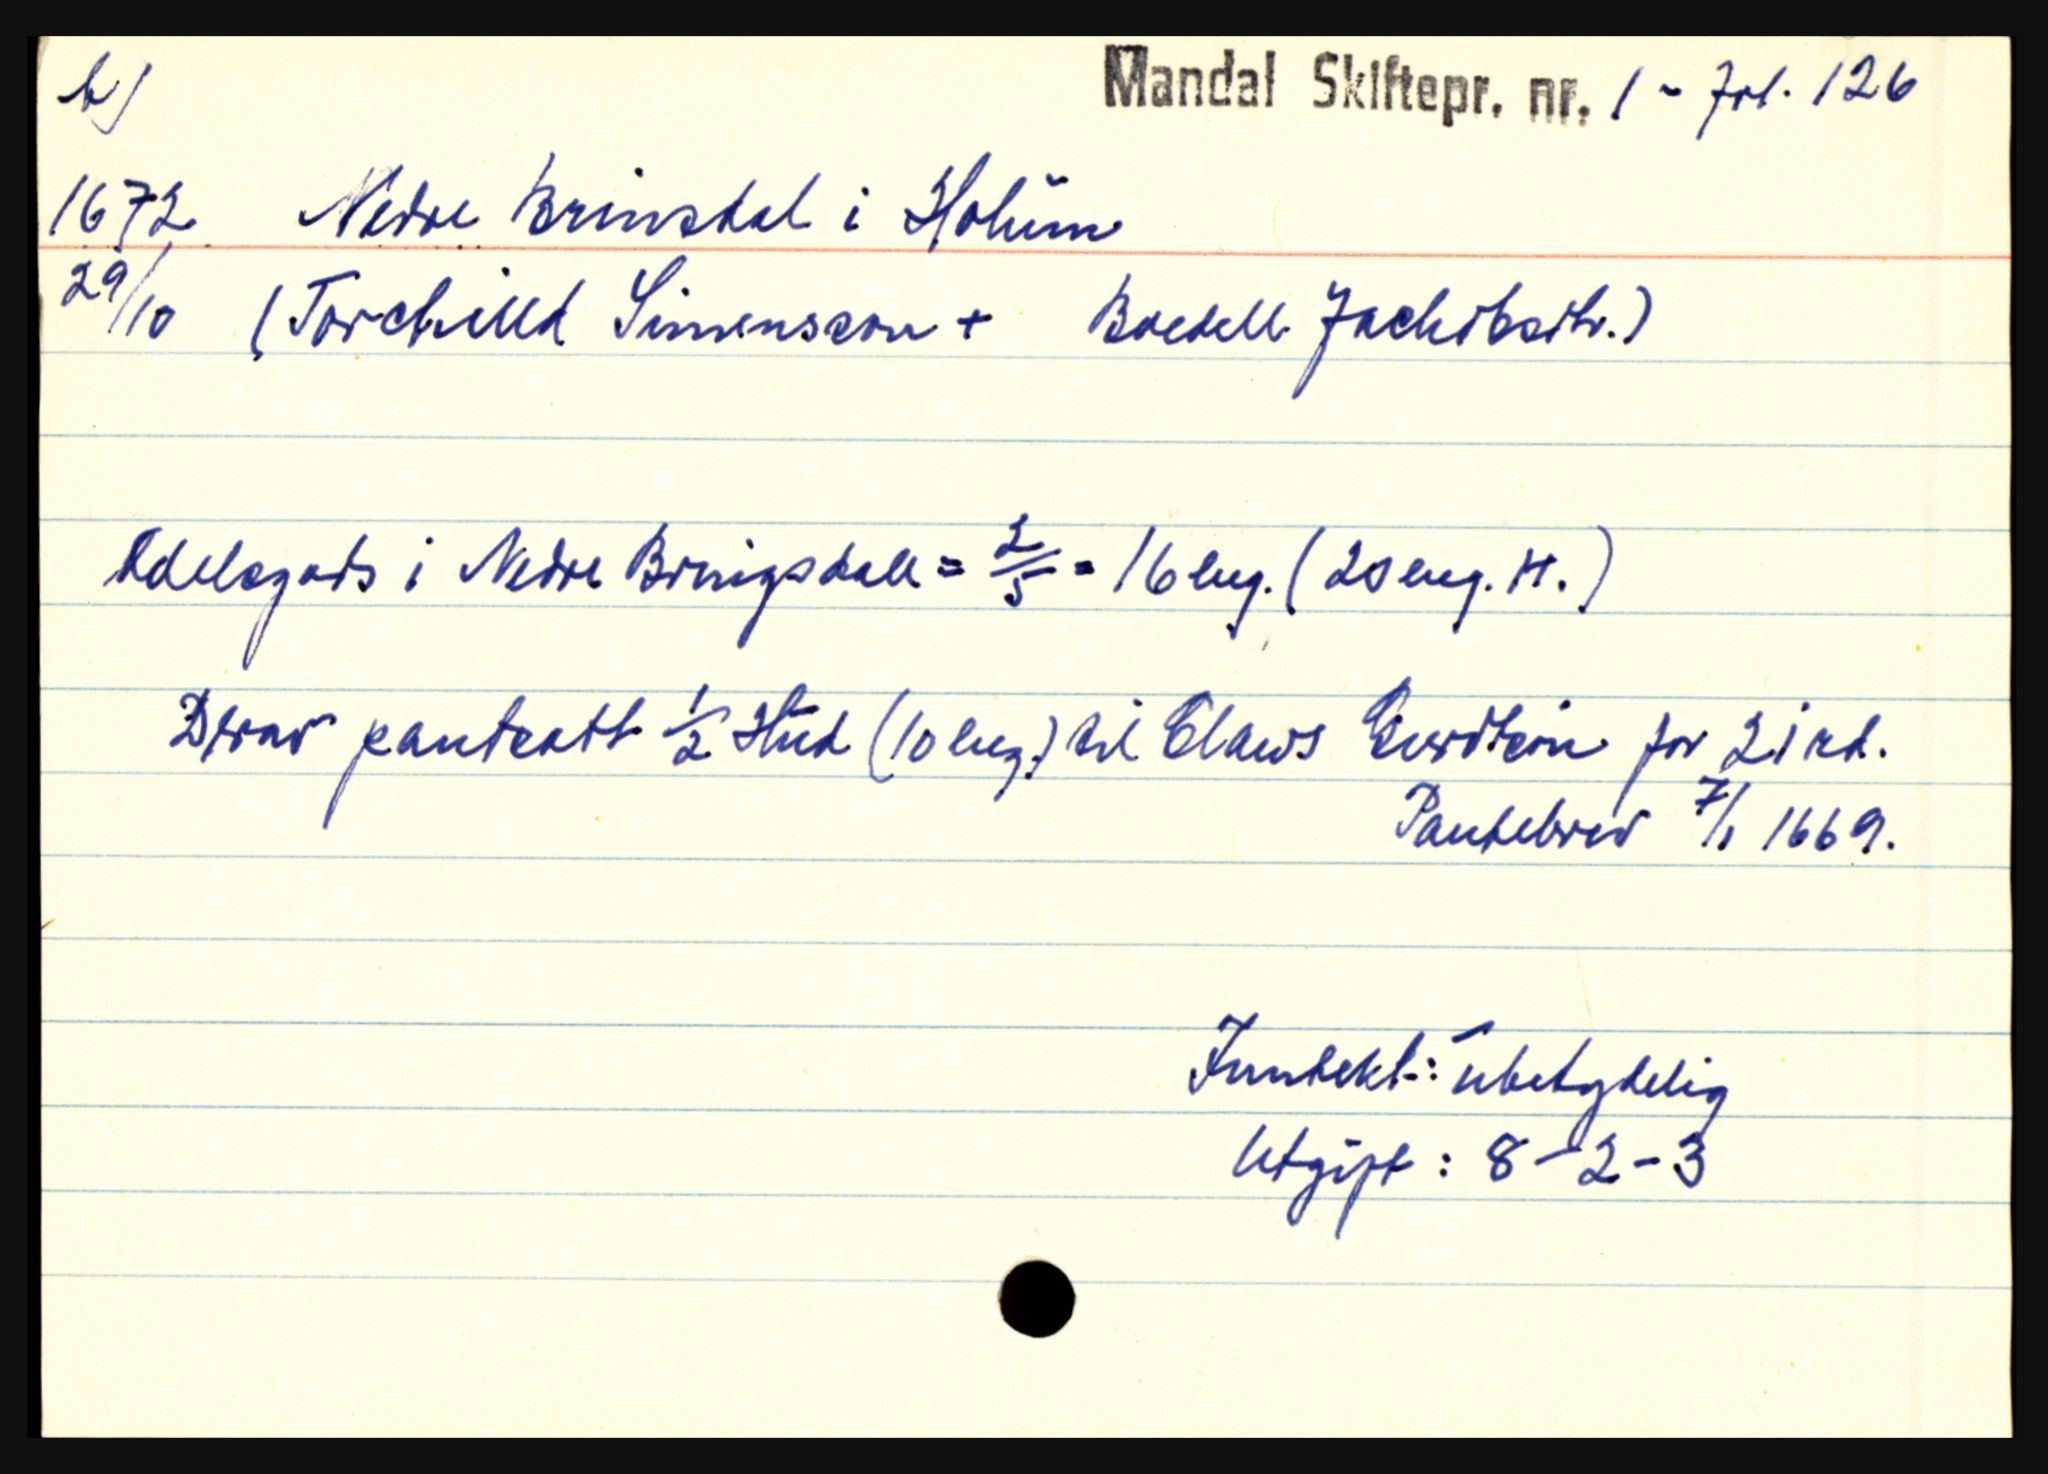 b)
Mandal Skiftepr. nr. 1 - Fol. 126
1672 Nedre Brinsdal i Holum
29/10 (Torchilld Simensøn + Boedell Jachobsdtr.)
Adelsgods i Nedre Bringsdall = 2/5 = 16 eng. (20 eng. H.)
Derav pantsatt 1/2 Hud (10 eng.) til Claws for 21 rd.
Pantebrev 7/1 1669.
Inntekt: ubetydelig
Utgift: 8-2-3